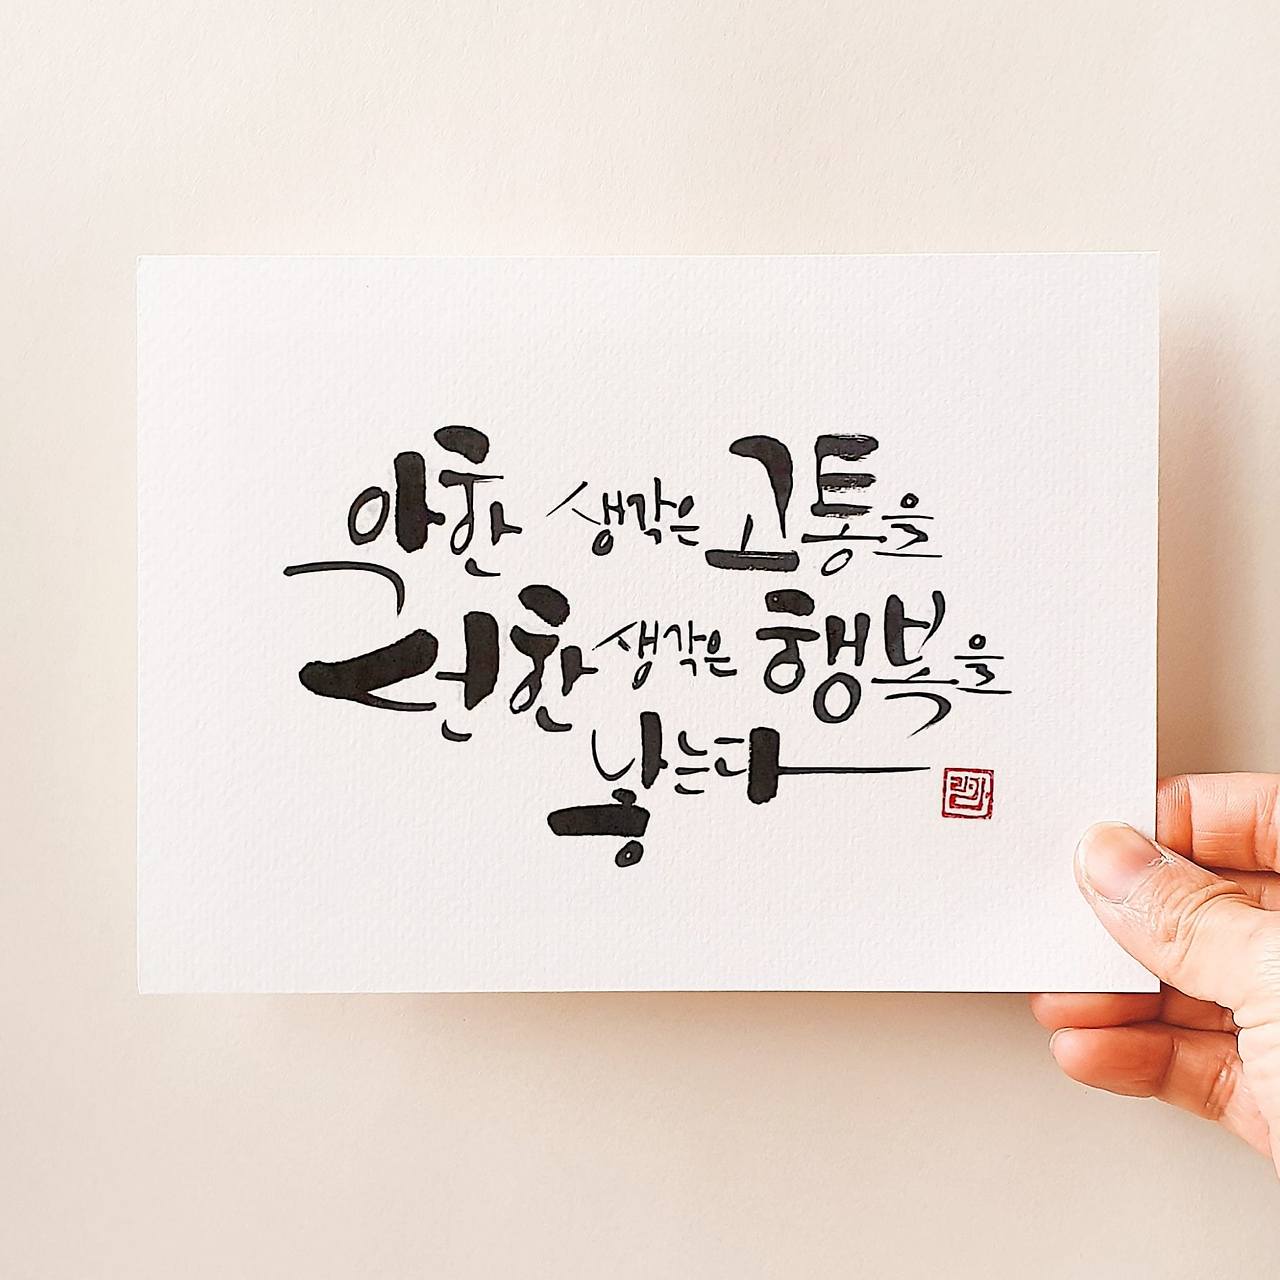 악한 생각은 고통을
선한 생각은 행복을
낳는다